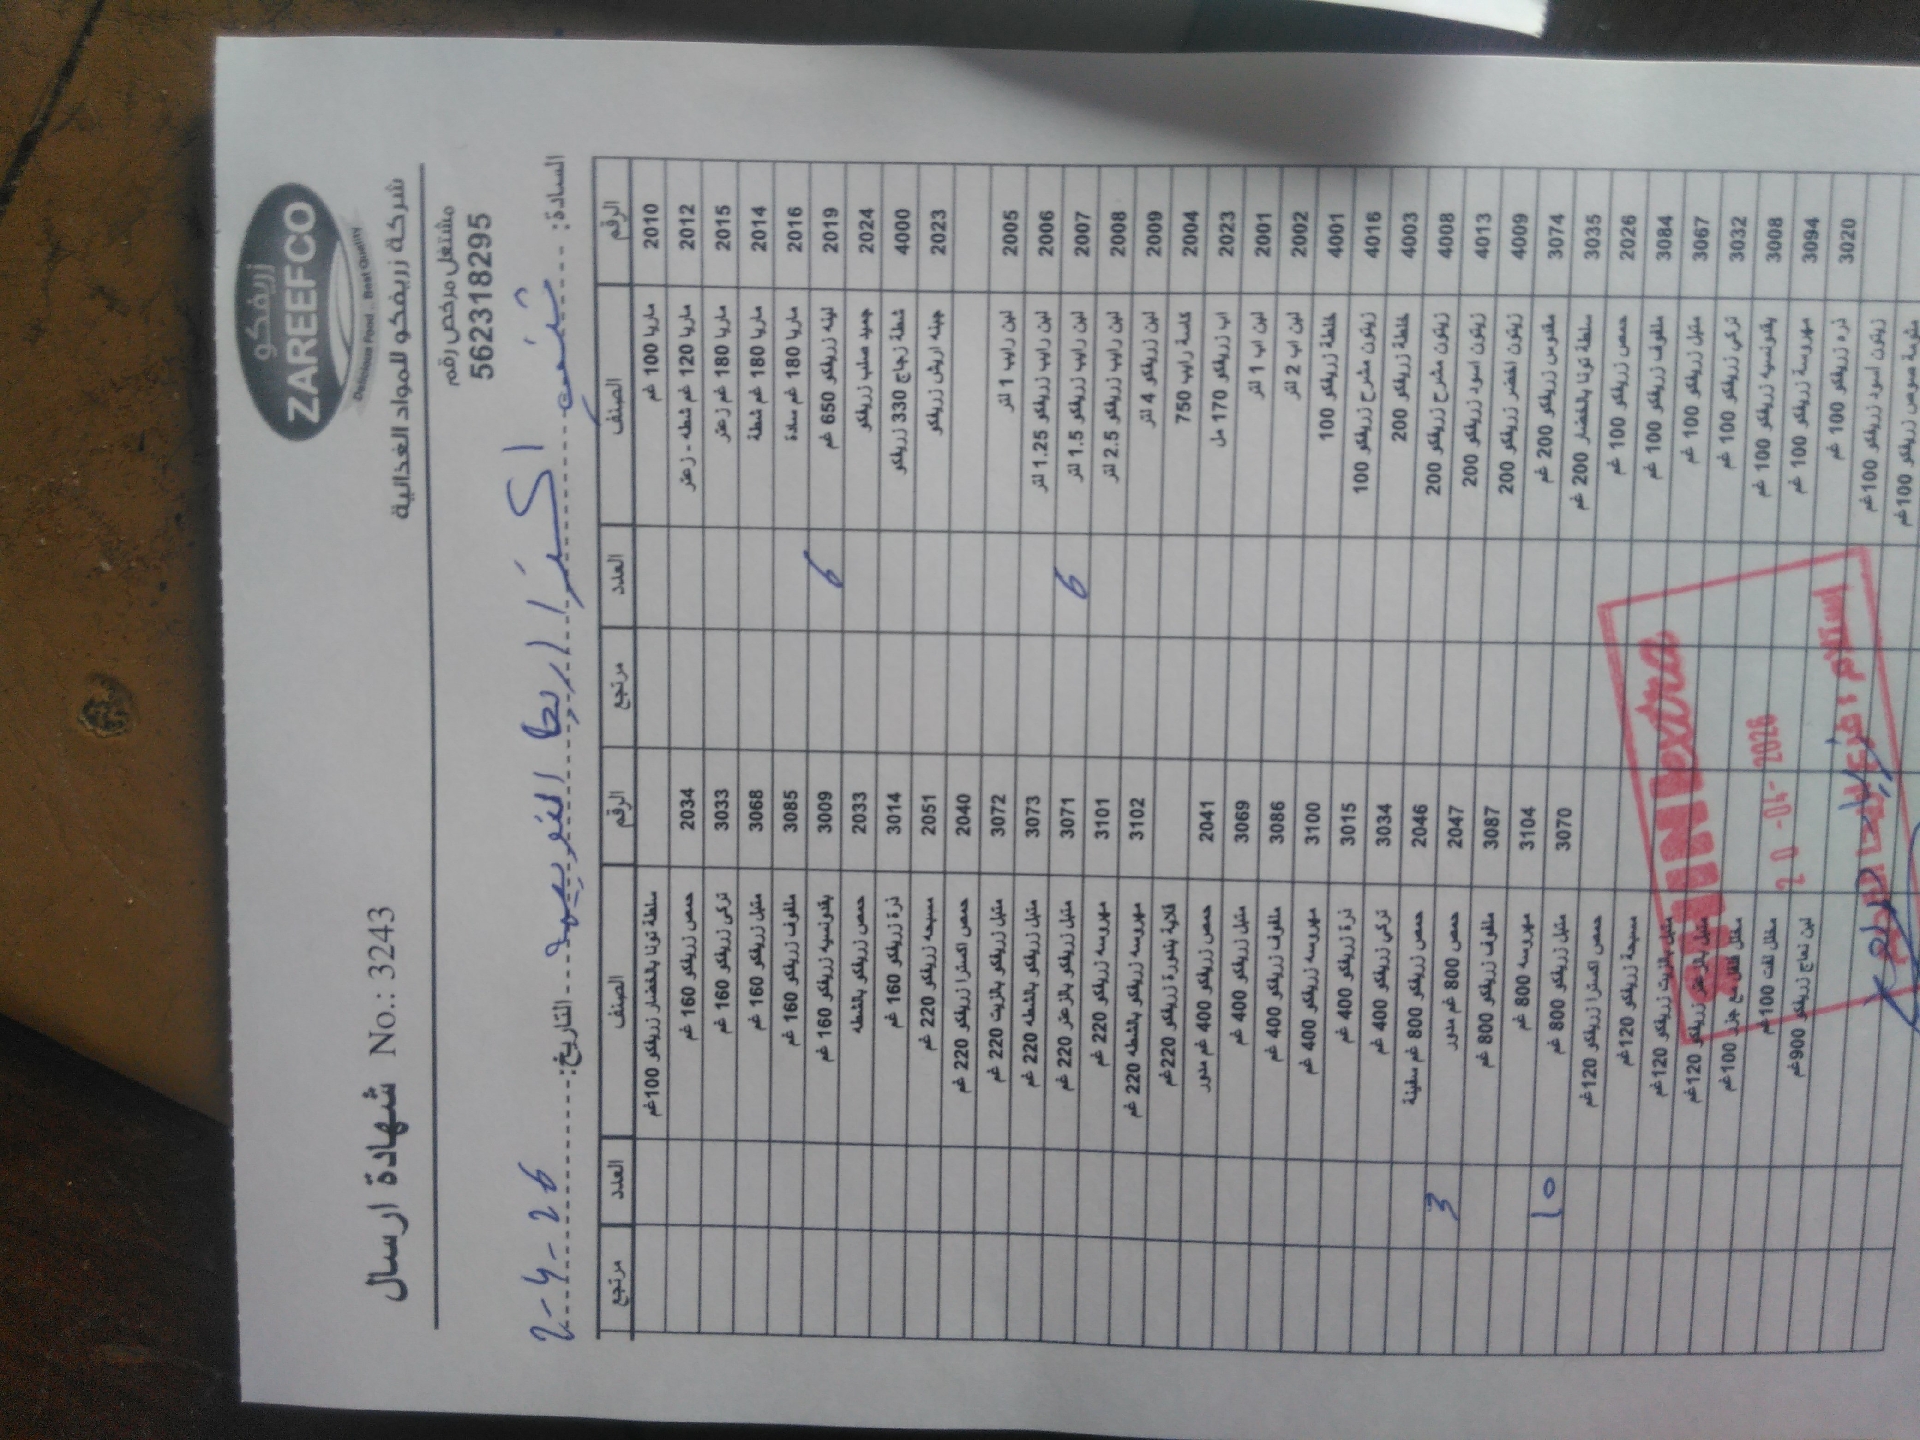 زريفكو
ZAREEFCO
Delicious Food .. Best Quality
شركة زريفكو للمواد الغذائية
مشتغل مرخص رقم
562318295
شهادة ارسال No.: 3243
السادة: اكسترا اريحا التاريخ: 2-4-26
الرقم الصنف العدد مرتجع الرقم الصنف العدد مرتجع
2010 ماريا 100 غم سلطة تونا بالخضار زريفكو 100غم
2012 ماريا 120 غم شطه - زعتر 2034 حمص زريفكو 160 غم
2015 ماريا 180 غم زعتر 3033 تركي زريفكو 160 غم
2014 ماريا 180 غم شطة 3068 متبل زريفكو 160 غم
2016 ماريا 180 غم سادة 3085 ملفوف زريفكو 160 غم
2019 لبنه زريفكو 650 غم 6 3009 بقدونسيه زريفكو 160 غم
2024 جميد صلب زريفكو 2033 حمص زريفكو بالشطه
4000 شطة زجاج 330 زريفكو 3014 ذرة زريفكو 160 غم
2023 جبنه اريش زريفكو 2051 مسبحه زريفكو 220 غم
2040 حمص اكسترا زريفكو 220 غم
2005 لبن رايب 1 لتر 3072 متبل زريفكو بالزيت 220 غم
2006 لبن رايب زريفكو 1.25 لتر 3073 متبل زريفكو بالشطه 220 غم
2007 لبن رايب زريفكو 1.5 لتر 6 3071 متبل زريفكو بالزعتر 220 غم
2008 لبن رايب زريفكو 2.5 لتر 3101 مهروسه زريفكو 220 غم
2009 لبن زريفكو 4 لتر 3102 مهروسه زريفكو بالشطه 220 غم
2004 كاسة رايب 750 قلاية بندورة زريفكو 220غم
2023 اب زريفكو 170 مل 2041 حمص زريفكو 400 غم مدور
2001 لبن اب 1 لتر 3069 متبل زريفكو 400 غم
2002 لبن اب 2 لتر 3086 ملفوف زريفكو 400 غم
4001 خلطة زريفكو 100 3100 مهروسه زريفكو 400 غم
4016 زيتون مشرح زريفكو 100 3015 ذرة زريفكو 400 غم
4003 خلطة زريفكو 200 3034 تركي زريفكو 400 غم
4008 زيتون مشرح زريفكو 200 2046 حمص زريفكو 800 غم سفينة
4013 زيتون اسود زريفكو 200 2047 حمص 800 غم مدور 3
4009 زيتون اخضر زريفكو 200 3087 ملفوف زريفكو 800 غم
3074 مقدوس زريفكو 200 غم 3104 مهروسه 800 غم
3035 سلطة تونا بالخضار 200 غم 3070 متبل زريفكو 800 غم 10
2026 حمص زريفكو 100 غم حمص اكسترا زريفكو 120غم
3084 ملفوف زريفكو 100 غم مسبحة زريفكو 120غم
3067 متبل زريفكو 100 غم متبل بالزيت زريفكو 120غم
3032 تركي زريفكو 100 غم متبل بالزعتر زريفكو 120غم
3008 بقدونسيه زريفكو 100 غم مخلل فلفل مع جزر 100غم
3094 مهروسة زريفكو 100 غم مخلل لفت 100غم
3020 ذره زريفكو 100 غم لبن نعاج زريفكو 900غم
زيتون اسود زريفكو 100غم
ثومية صوص زريفكو 100غم
extra
20 -04- 2026
استلام